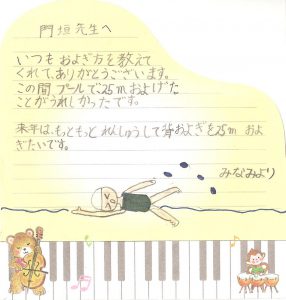 門垣先生へ
いつもおよぎ方を教えて
くれて、ありがとうございます。
この間プールで25mおよげた
ことがうれしかったです。
来年は、もっともっとれんしゅうして背およぎを25mおよ
ぎたいです。
みなみより